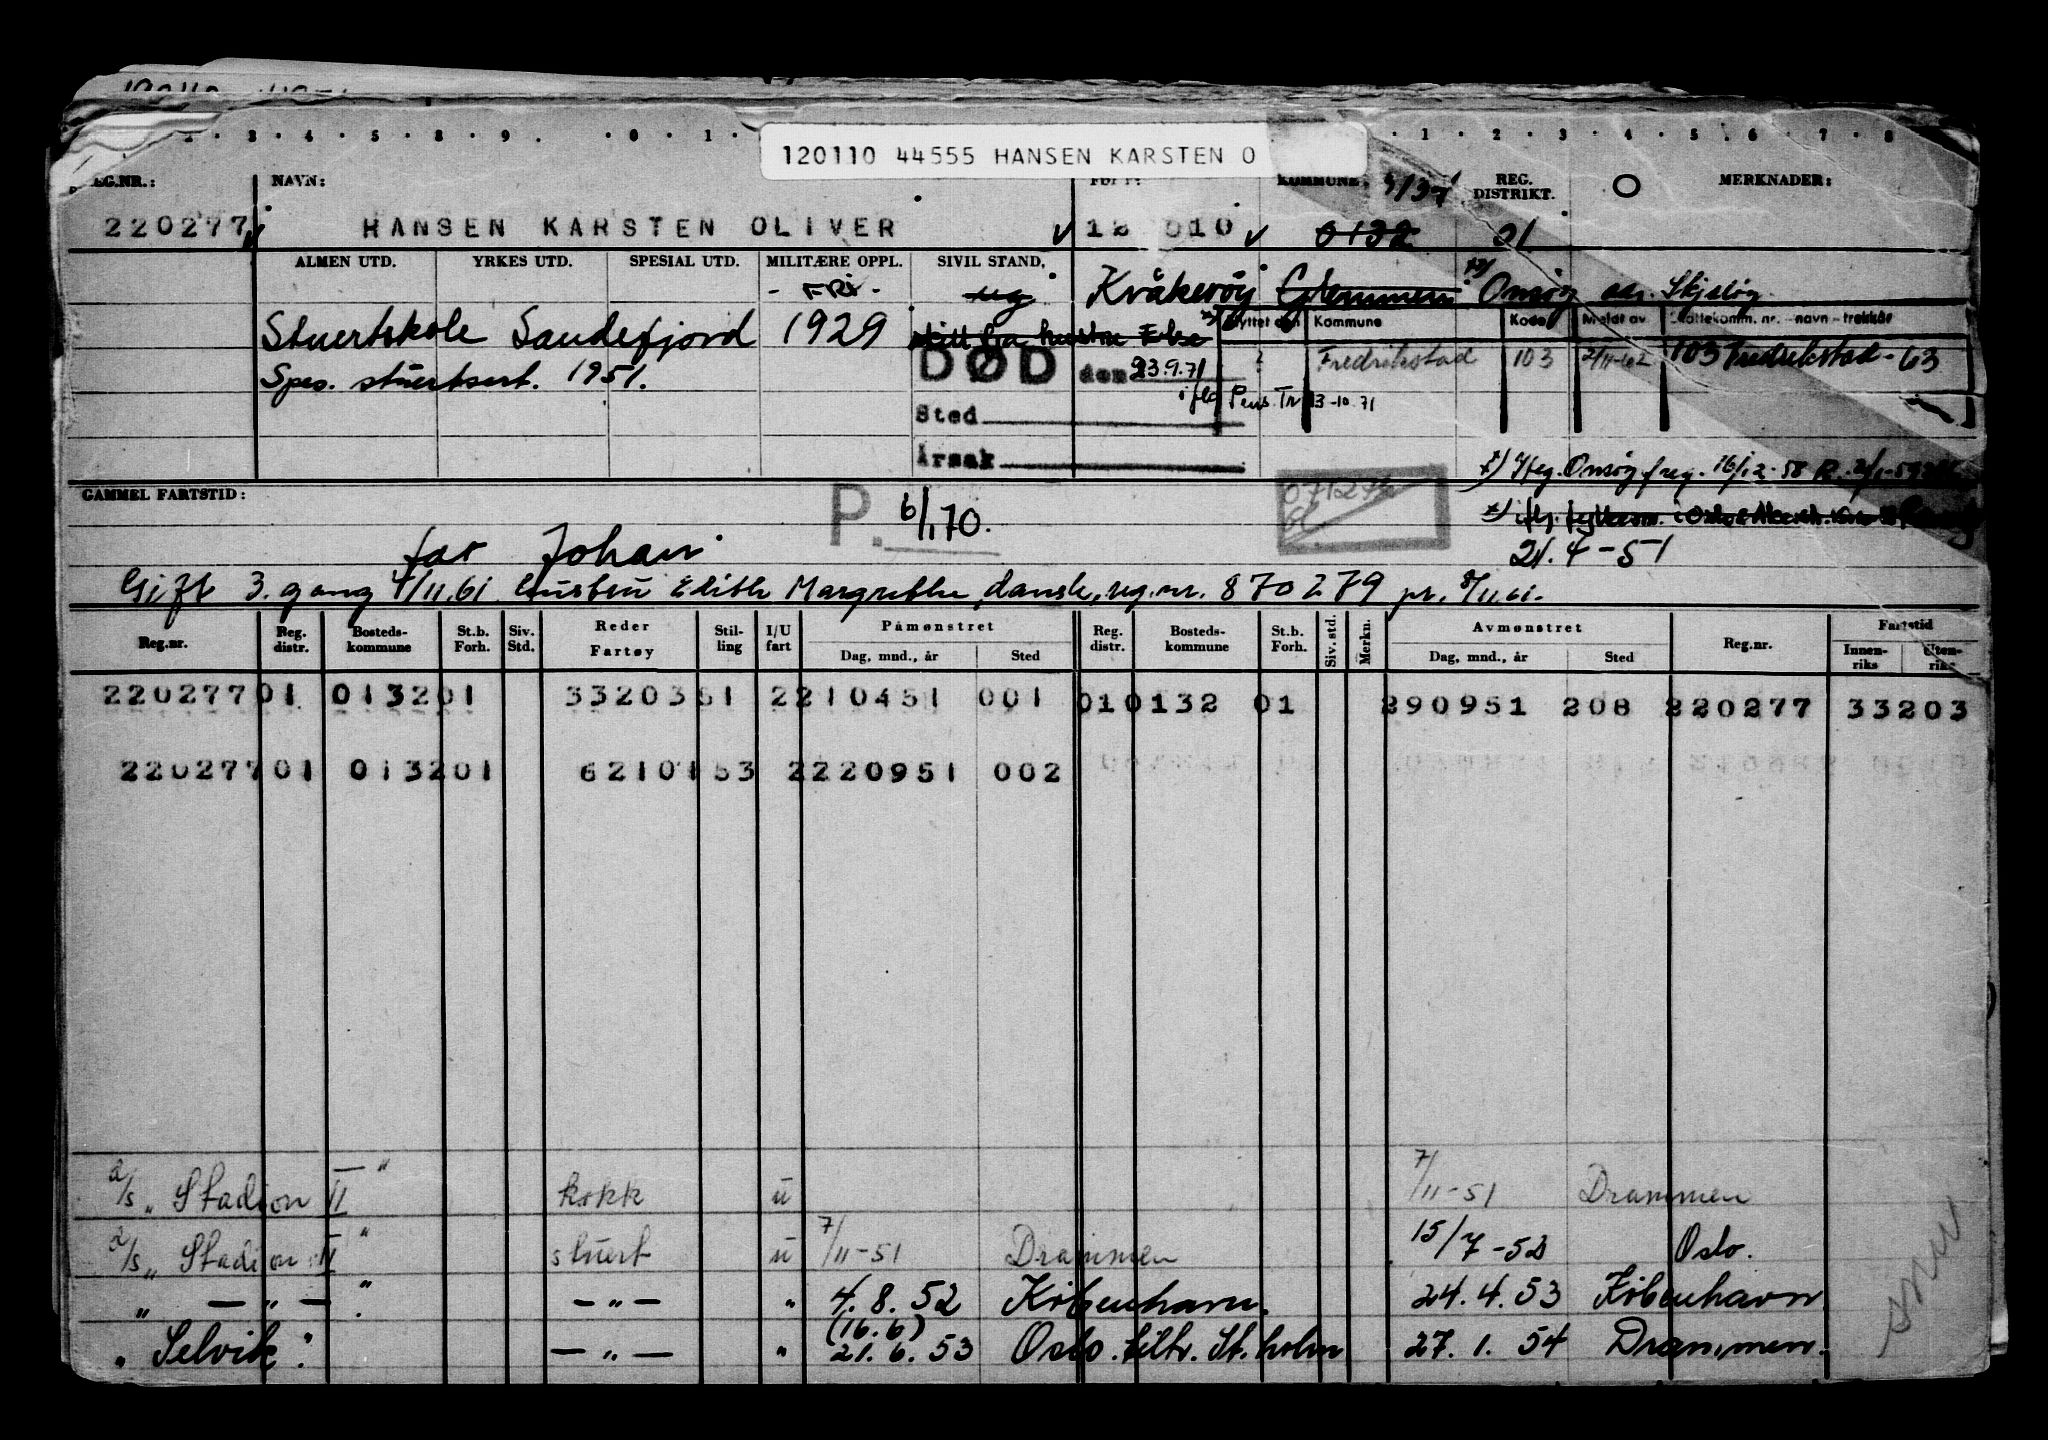 3 . 4 . 5 . 8 . 9 . . 0 . 1 . 1 . 2 . 3 . 4 . 5 . 6 . 7 . 8
120110 44555 HANSEN KARSTEN O
REG.NR.: NAVN: KOMMUNE REG. DISTRIKT. O MERKNADER:
220277 HANSEN KARSTEN OLIVER 0132 01
ALMEN UTD. YRKES UTD. SPESIAL UTD. MILITÆRE OPPL. SIVIL STAND, Kråkerøy Glemmen Onsøy Skjeløy
- FRI -
ug
Stuertskole Sandefjord 1929 Flyttet den Kommune Kode Meldt av Skattekomm. nr. - navn - trekkår
DØD den 23.9.71 ? Fredrikstad 103 2/11-62 103 Fredrikstad - 63
Spes. stuertsert. 1951.
ifl. Pens.Tr 13-10.71
Sted
Årsak
Onsøy f.reg. 16/12-58
GAMMEL FARTSTID:
P. 6/1.70.
21.4-51
far Johan
Gift 3. gang 4/11.61 hustru Edith Margrethe, dansk, reg.nr. 870279 pr. 8/11.61.
Reg.nr. Reg. distr. Bosteds-kommune St.b. Forh. Siv. Std. Reder Fartøy Stil-ling I/U fart Påmønstret Dag, mnd., år Sted Reg. distr. Bosteds-kommune St.b. Forh. Siv. std. Merkn. Avmønstret Dag, mnd., år Sted Reg.nr. Fartstid Innen-riks Uten-riks
220277 01 0132 01 33203 51 2 210451 001 01 0132 01 290951 208 220277 33203
220277 01 0132 01 62101 53 2 220951 002
d/s „ Stadion II " kokk u 7/11-51 Drammen
d/s „ Stadion II " stuert u 7/11-51 Drammen 15/7-52 Oslo.
„ — „ — " — „ — " 4.8.52 København. 24.4.53 København
(16.6)
„ Selvik " — „ — " 21.6.53 Oslo. tiltr. St.holm 27.1.54 Drammen.